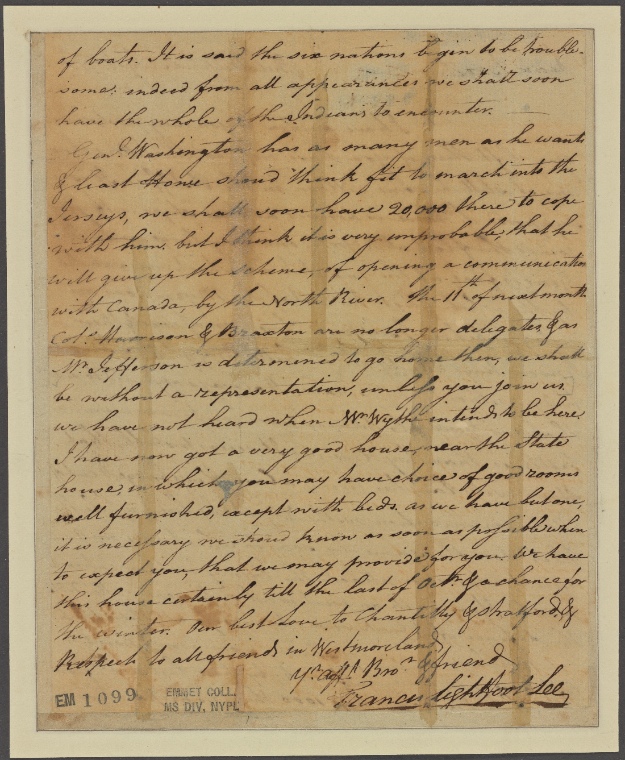 of boats. It is said the six nations begin to be trouble-
some; indeed from all appearances we shall soon
have the whole of the Indians to encounter.
Genl. Washington has as many men as he wants
& least Howe should think fit to march into the
Jerseys, we shall soon have 20,000 there to cope
with him. but I think it is very improbable, that he
will give up the scheme, of opening a communication
with Canada, by the North River. The 11th of next month
Colo. Harrison & Braxton are no longer delegates, & as
Mr. Jefferson is determined to go home then, we shall
be without a representation, unless you join us.
we have not heard when Mr. Wythe intends to be here
I have now got a very good house, near the State
house, in which you may have choice of good rooms
well furnished, except with beds. as we have but one,
it is necessary we shou'd know as soon as possible when
to expect you, that we may provide for you. We have
this house certainly till the last of Octr. & a chance for
the winter. Our best love to Chantilly & Stratford, &
Respects to all friends in Westmoreland
Yr. afft. Bror. & friend
Francis Lightfoot Lee
EM 1099
EMMET COLL.
MS DIV, NYPL